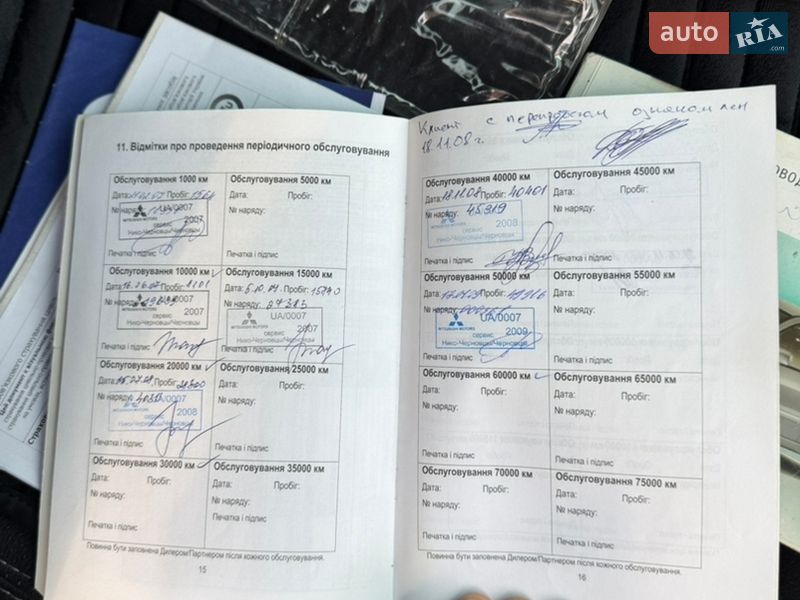 auto RIA
11. Відмітки про проведення періодичного обслуговування
Обслуговування 1000 км
Дата: Пробіг:
№ наряду:
UA/0007
2007
MITSUBISHI MOTORS
сервис
Нико-Черновцы/Черновцы
Печатка і підпис
Обслуговування 5000 км
Дата: Пробіг:
№ наряду:
Печатка і підпис
Обслуговування 10000 км
Дата: Пробіг:
№ наряду:
UA/0007
2007
MITSUBISHI MOTORS
сервис
Нико-Черновцы/Черновцы
Печатка і підпис
Обслуговування 15000 км
Дата: Пробіг:
№ наряду:
UA/0007
2007
MITSUBISHI MOTORS
сервис
Нико-Черновцы/Черновцы
Печатка і підпис
Обслуговування 20000 км
Дата: Пробіг:
№ наряду:
UA/0007
2008
сервис
Нико-Черновцы/Черновцы
Печатка і підпис
Обслуговування 25000 км
Дата: Пробіг:
№ наряду:
Печатка і підпис
Обслуговування 30000 км
Дата: Пробіг:
№ наряду:
Печатка і підпис
Обслуговування 35000 км
Дата: Пробіг:
№ наряду:
Печатка і підпис
Повинна бути заповнена Дилером/Партнером після кожного обслуговування.
15
Клиент с ознакомлен
18.11.08 г.
Обслуговування 40000 км
Дата: 18.11.08 Пробіг: 40401
№ наряду: 45919
2008
сервис
Нико-Черновцы/Черновцы
Печатка і підпис
Обслуговування 45000 км
Дата: Пробіг:
№ наряду:
Печатка і підпис
Обслуговування 50000 км
Дата: Пробіг:
№ наряду:
UA/0007
сервис
MITSUBISHI MOTORS
2009
Нико-Черновцы/Черновцы
Печатка і підпис
Обслуговування 55000 км
Дата: Пробіг:
№ наряду:
Печатка і підпис
Обслуговування 60000 км
Дата: Пробіг:
№ наряду:
Печатка і підпис
Обслуговування 65000 км
Дата: Пробіг:
№ наряду:
Печатка і підпис
Обслуговування 70000 км
Дата: Пробіг:
№ наряду:
Печатка і підпис
Обслуговування 75000 км
Дата: Пробіг:
№ наряду:
Печатка і підпис
Повинна бути заповнена Дилером/Партнером після кожного обслуговування.
16